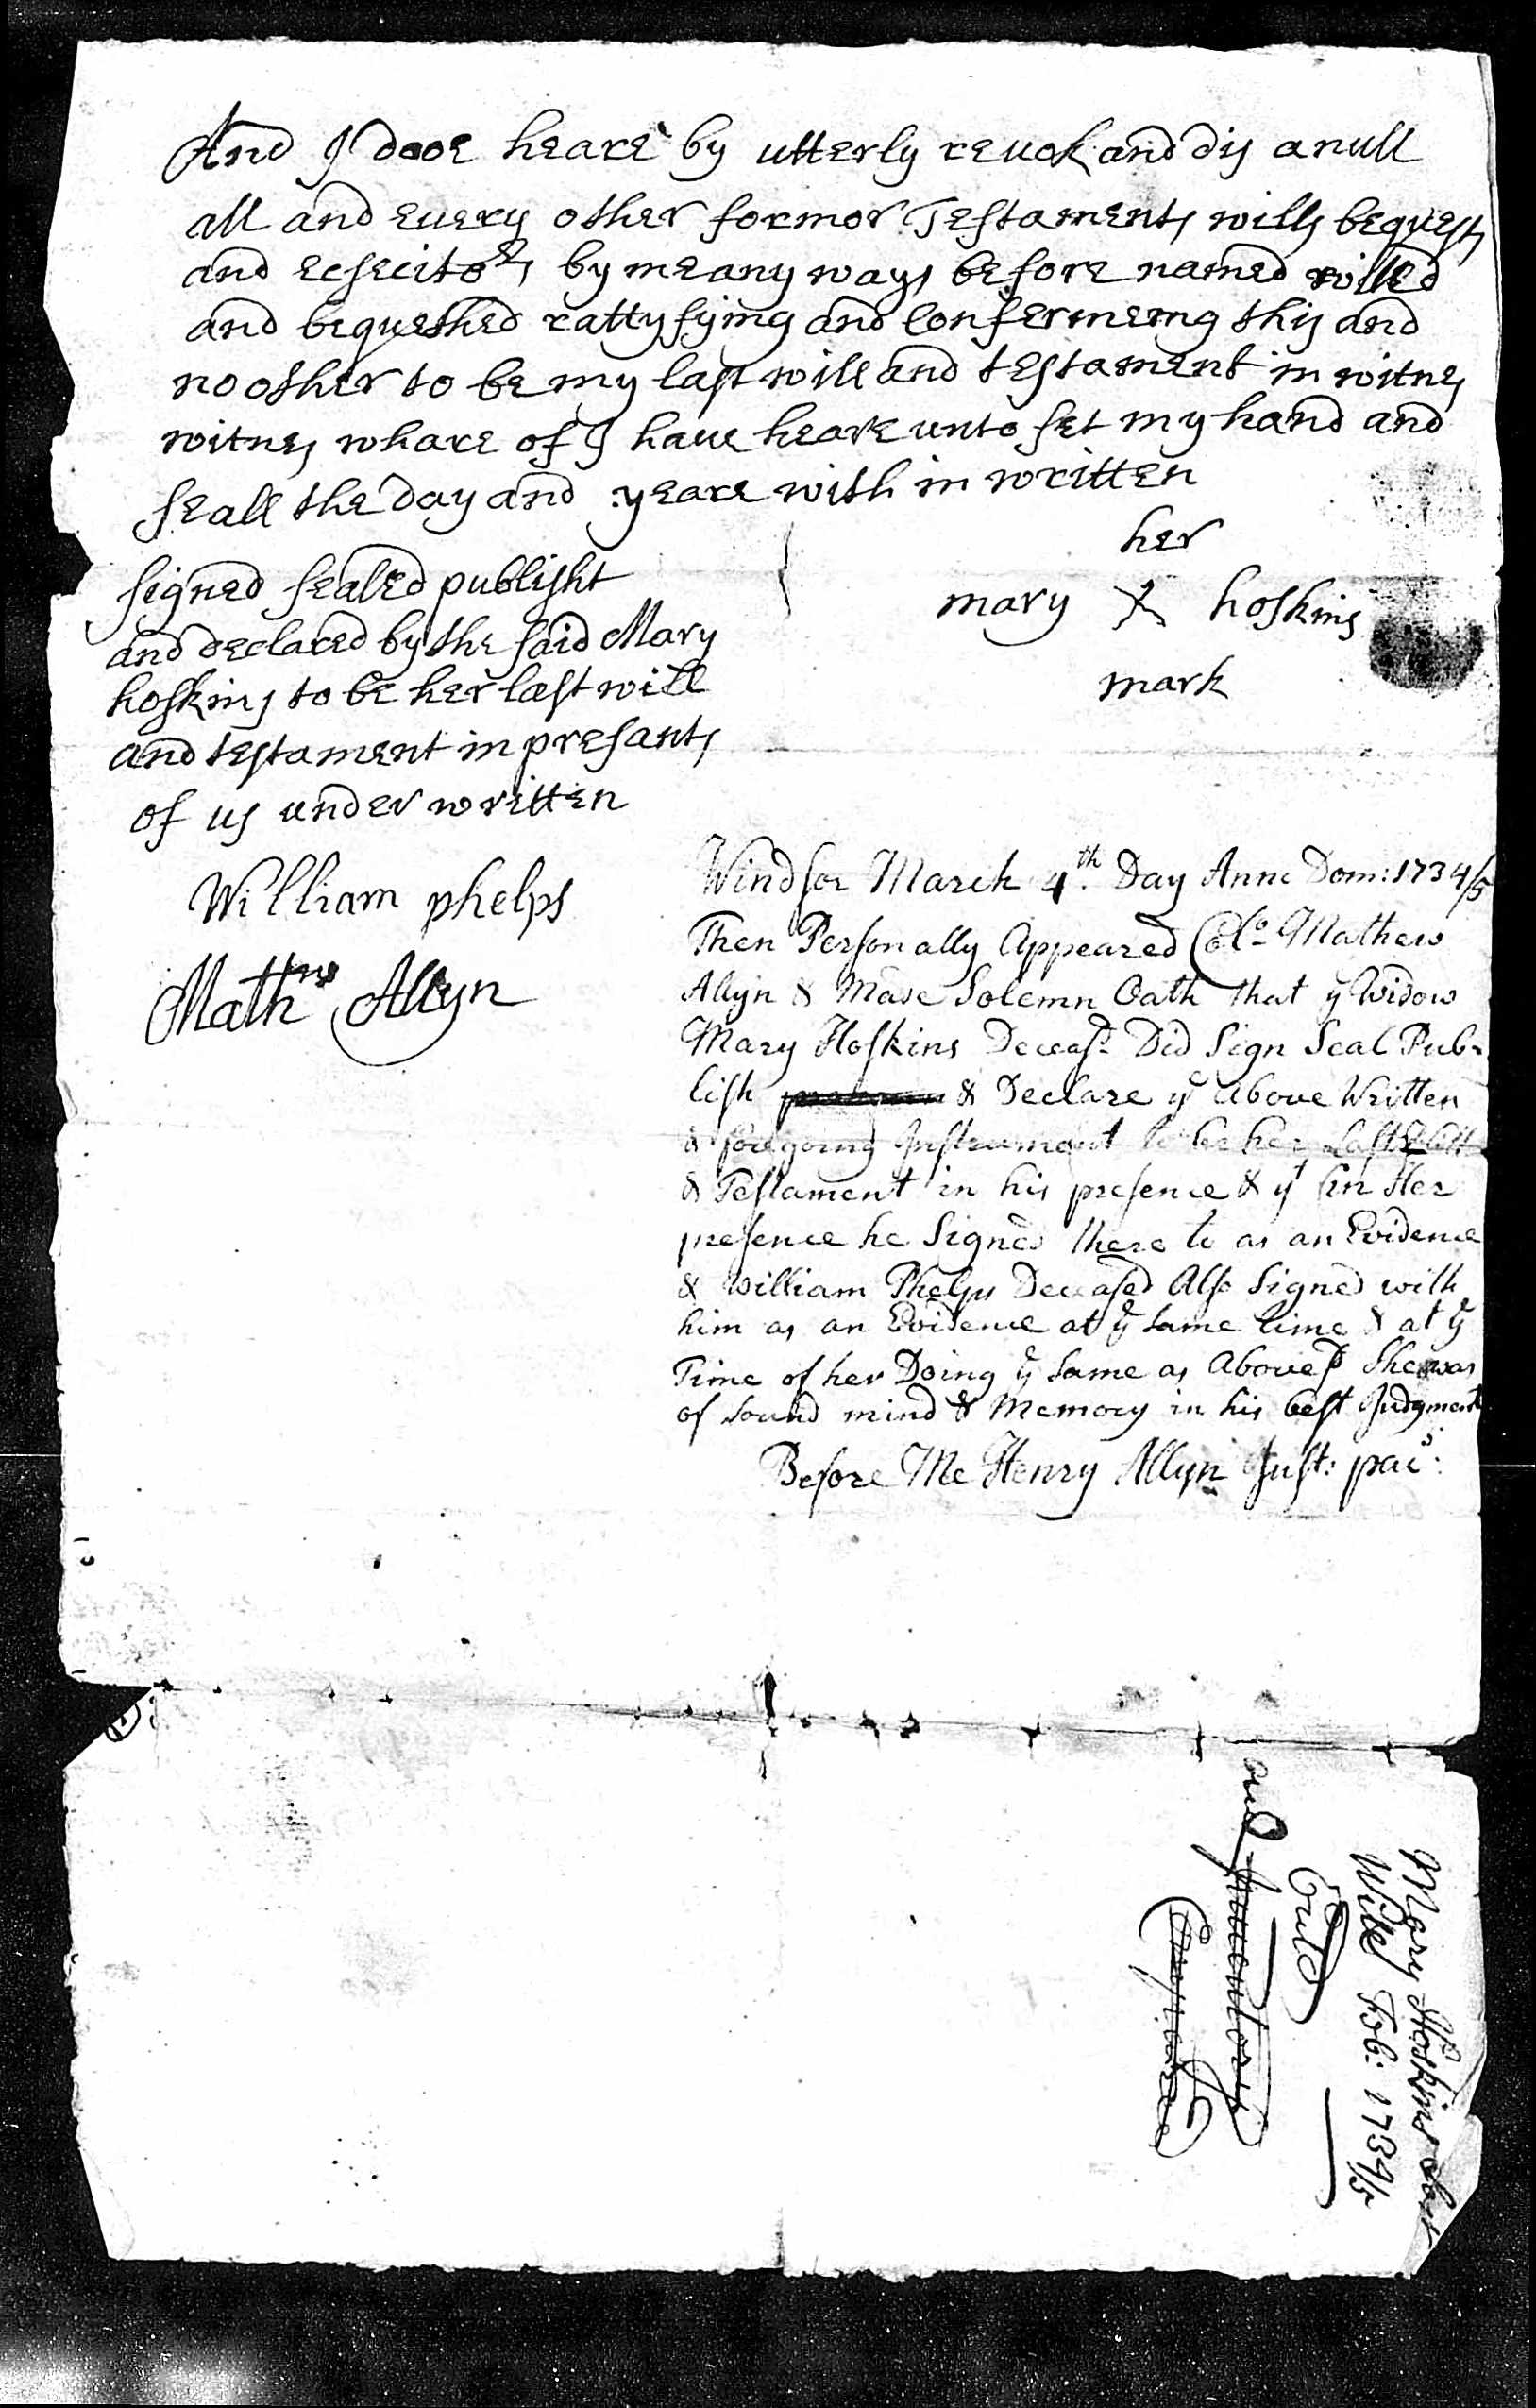 And I dooe heare by utterly reuok and dis anull
all and euery other formor Testaments wills bequests
and ecsecitors by me any ways before named willed
and bequethed rattyfying and confermeing this and
no other to be my last will and testament in witnes
witnes whare of I haue heare unto set my hand and
seall the day and yeare with in written
her
mary X hoskins
mark
signed sealed publisht
and declared by the said Mary
hoskins to be her last will
and testament in presants
of us under written
William phelps
Mathw Allyn
Windsor March 4th Day Anno Dom: 1734/5
Then Personally Appeared Colo Mathew
Allyn & Made Solemn Oath that ye Widow
Mary Hoskins Deceasd Did Sign Seal Pub-
lish & Declare ye above Written
& foregoing Instrument to be her Last Will
& Testament in his presence & yt in Her
presence he Signed there to as an Evidence
& William Phelps Deceased Also Signed with
him as an Evidence at ye same time & at ye
Time of her Doing ye same as Abovesd She was
of sound mind & Memory in his best Judgment
Before Me Henry Allyn Just: pacs:
Mary Hoskins
Will Feb: 1734/5
and Inventory